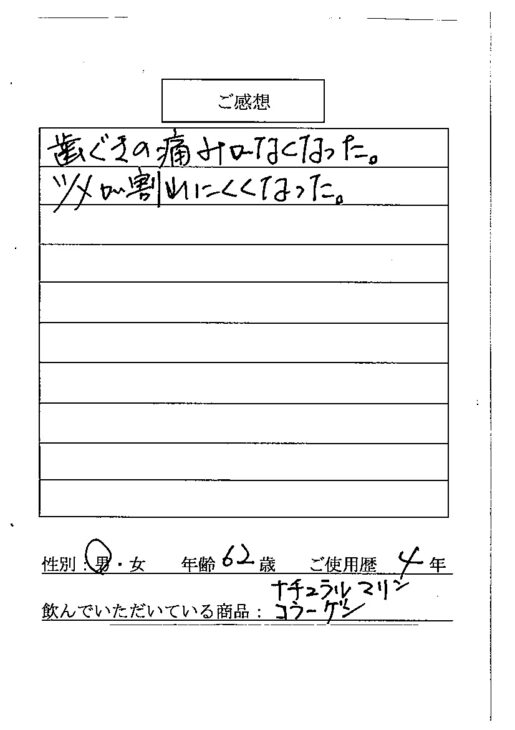 ご感想
歯ぐきの痛みがなくなった。
ツメが割れにくくなった。
性別：男・女　年齢 62 歳　ご使用歴 4 年
ナチュラルマリン
飲んでいただいている商品：コラーゲン